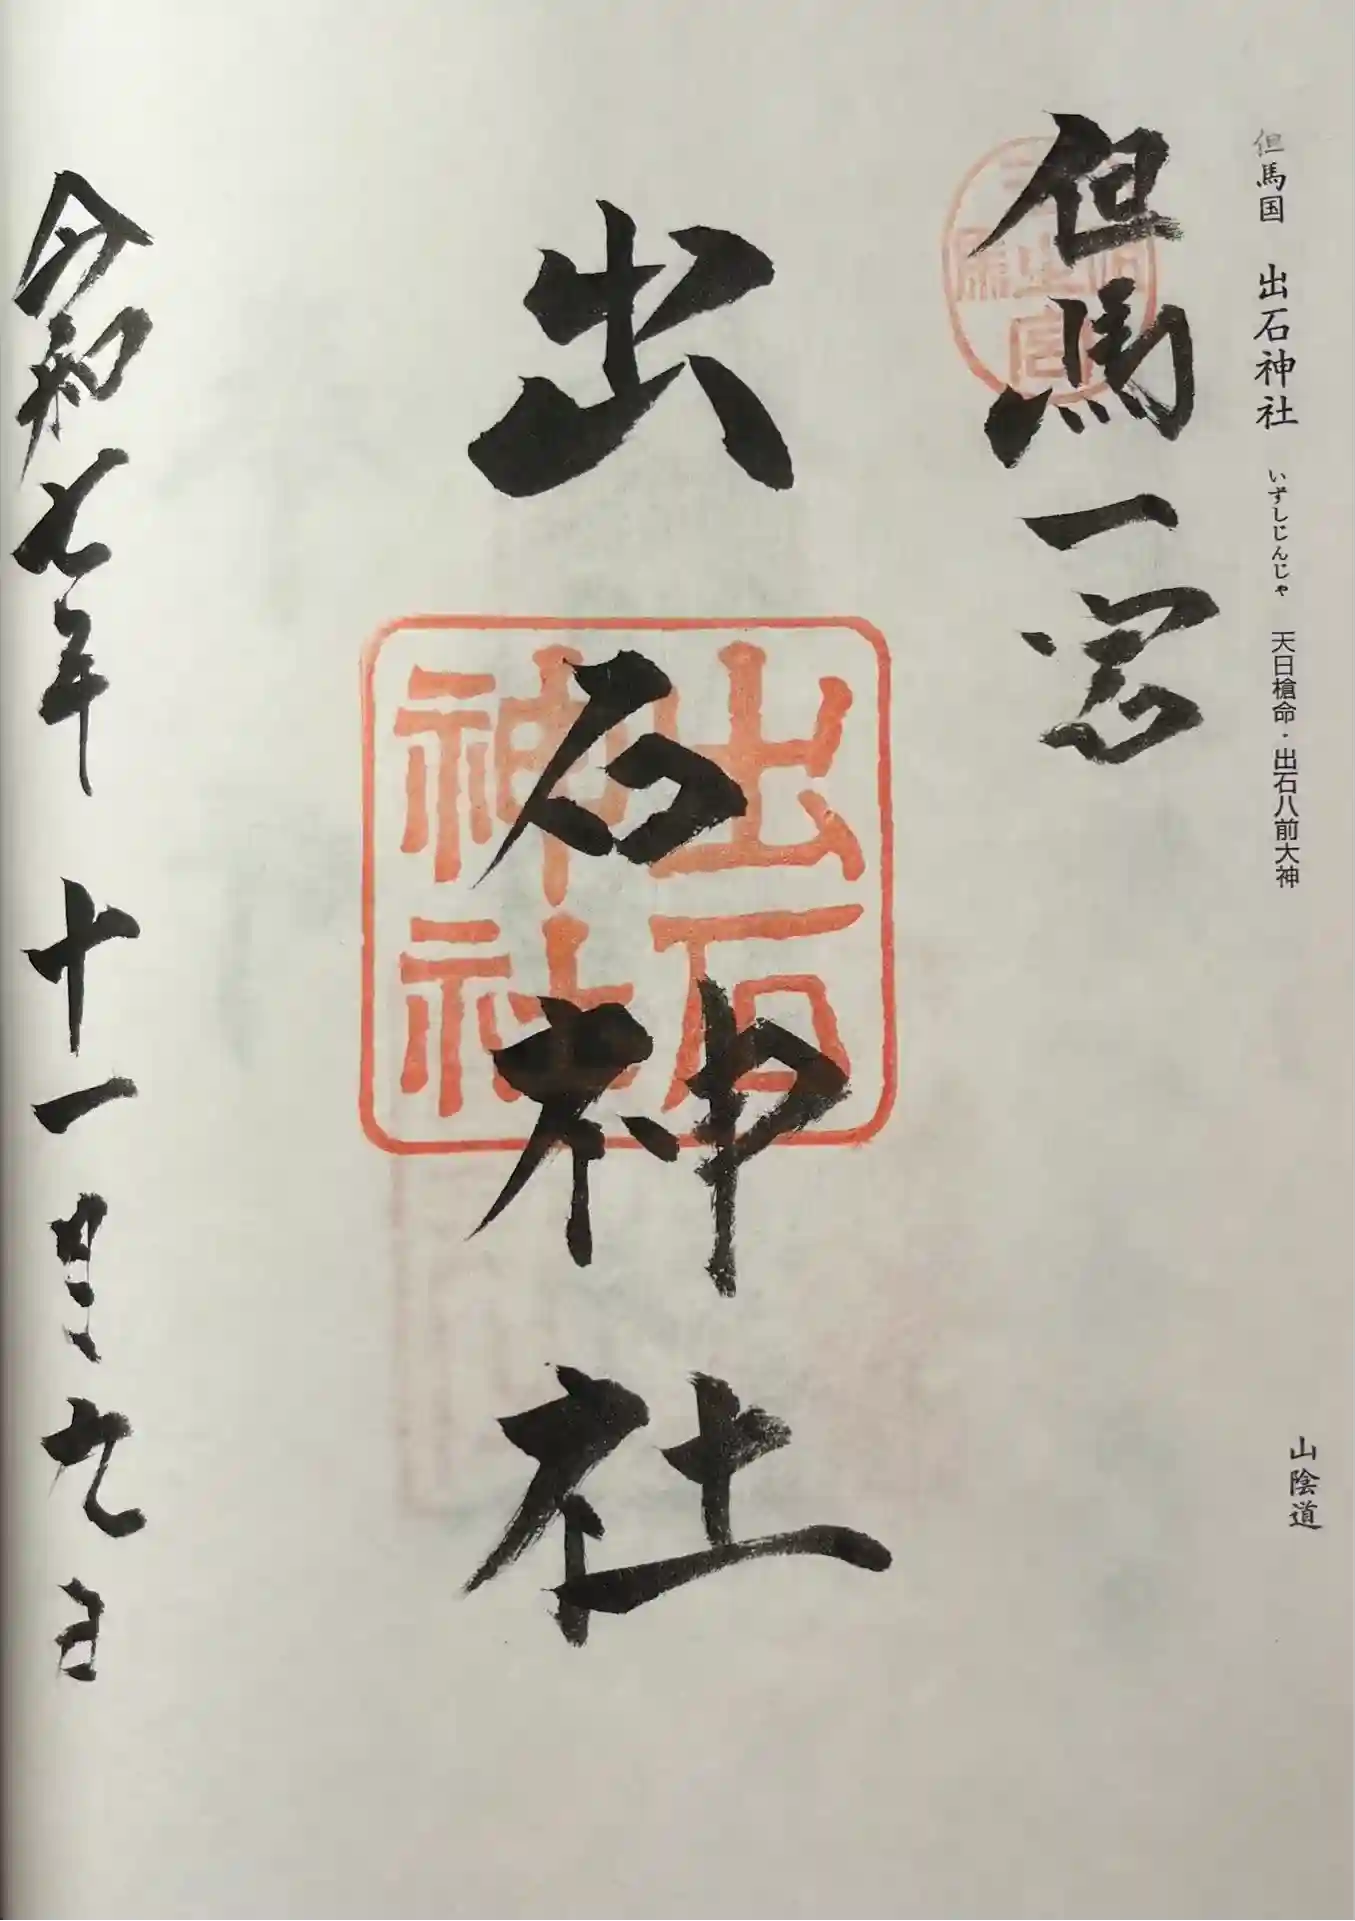 但馬国 出石神社 いずしじんじゃ 天日槍命・出石八前大神
山陰道
但馬一宮
出石神社
出石神社
令和七年 十一月九日